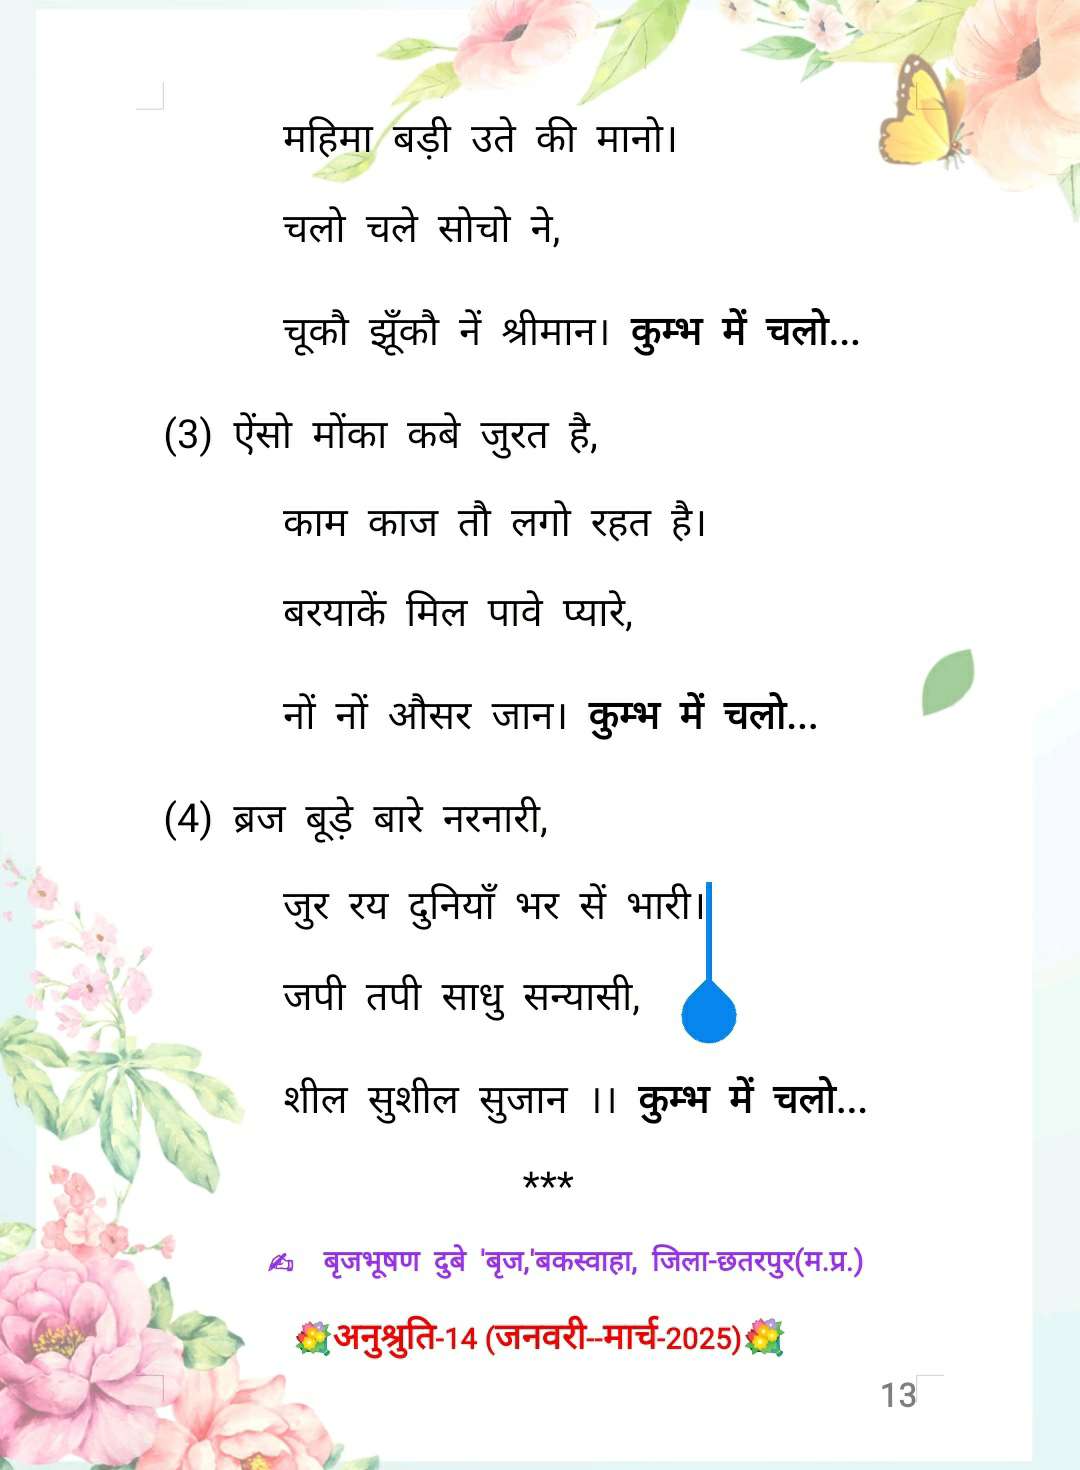 महिमा बड़ी उते की मानो।
चलो चले सोचो ने,
चूकौ झूँकौ नें श्रीमान। कुम्भ में चलो...
(3) ऐंसो मोंका कबे जुरत है,
काम काज तौ लगो रहत है।
बरयाकें मिल पावे प्यारे,
नों नों औसर जान। कुम्भ में चलो...
(4) ब्रज बूड़े बारे नरनारी,
जुर रय दुनियाँ भर सें भारी।
जपी तपी साधु सन्यासी,
शील सुशील सुजान ।। कुम्भ में चलो...
***
✍ बृजभूषण दुबे 'बृज,'बकस्वाहा, जिला-छतरपुर(म.प्र.)
💐अनुश्रुति-14 (जनवरी--मार्च-2025)💐
13